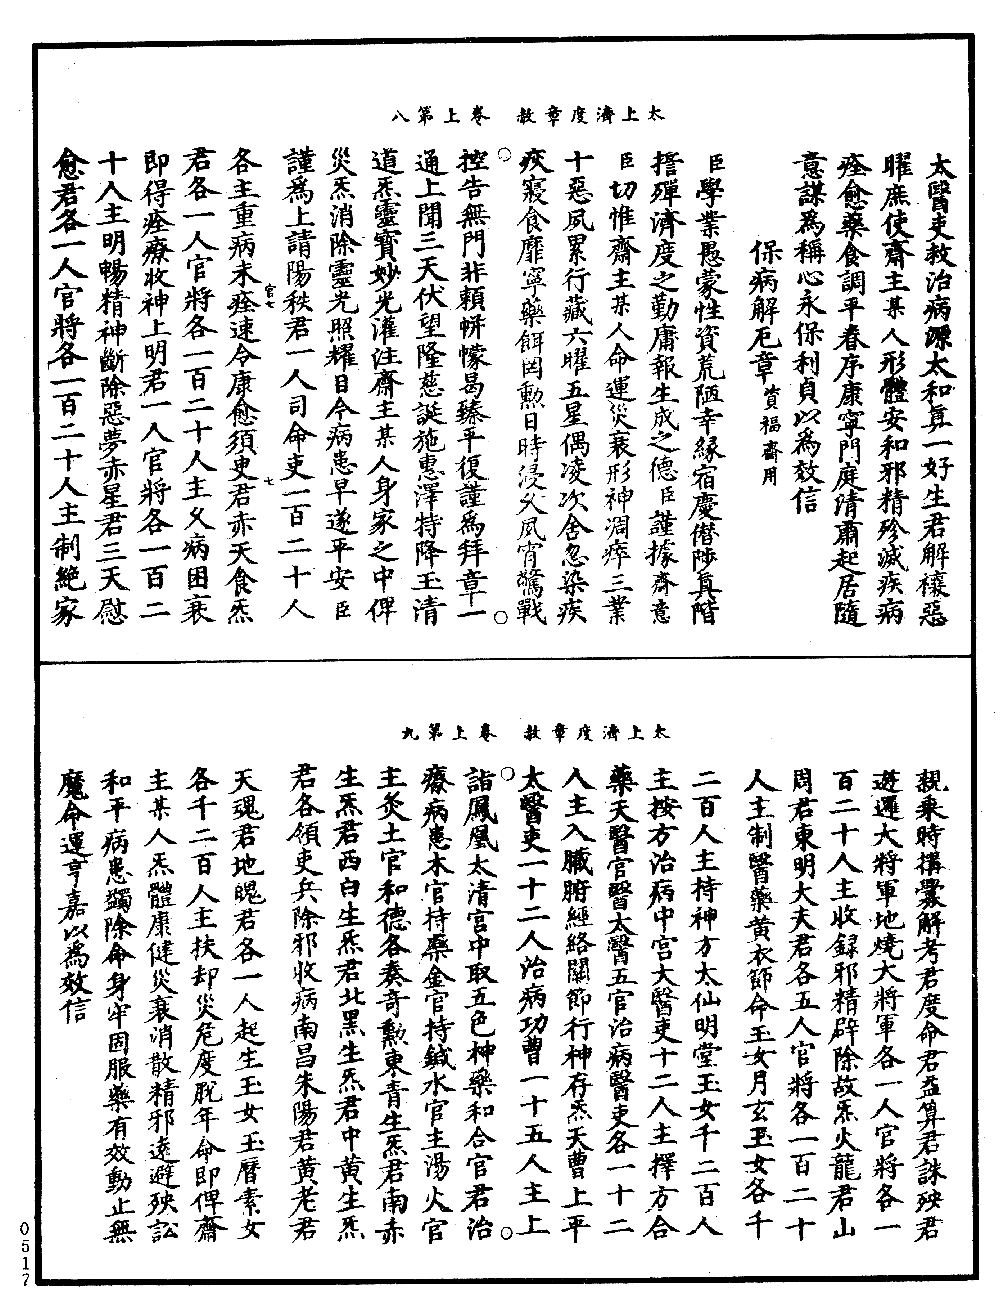 太上濟度章赦　卷上第八
太醫吏救治病源太和真一好生君解禳惡
曜庶使齋主某人形體安和邪精殄滅疾病
痊愈藥食調平春序康寧門庭清肅起居隨
意謀爲稱心永保利貞以爲效信
保病解厄章資福齋用
臣學業愚蒙性資荒陋幸緣宿慶僭陟真階
擅殫濟度之勤庸報生成之德臣謹據齋意
臣切惟齋主某人命運災衰形神凋瘁三業
十惡夙累行藏六曜五星偶凌次舍忽染疾
疾寢食靡寧藥餌罔勳日時浸久風宵驚戰
控告無門非賴帡幪曷臻平復謹爲拜章一
通上聞三天伏望隆慈誕施惠澤特降玉清
道炁靈寶妙光灌注齋主某人身家之中俾
災炁消除靈光照耀目今病患早遂平安臣
謹爲上請陽秩君一人司命吏一百二十人
官七
各主重病未痊速令康愈須臾君赤天食炁
七
君各一人官將各一百二十人主久病困衰
即得痊療收神上明君一人官將各一百二
十人主明暢精神斷除惡夢赤星君三天慰
愈君各一人官將各一百二十人主制絕家
太上濟度章赦　卷上第九
親乘時搆釁解考君度命君益算君誅殃君
遊邏大將軍地燒大將軍各一人官將各一
百二十人主收録邪精辟除故炁火龍君山
周君東明大夫君各五人官將各一百二十
人主制醫藥黄衣節命玉女月玄玉女各千
二百人主持神方太仙明堂玉女千二百人
主按方治病中宫大醫吏十二人主擇方合
藥天醫官醫太醫五官治病醫吏各一十二
人主入臟腑經絡關節行神存炁天曹上平
太醫吏一十二人治病功曹一十五人主上
詣鳳凰太清宫中取五色神藥和合官君治
療病患木官持藥金官持鍼水官主湯火官
主灸土官和德各奏奇勳東青生炁君南赤
生炁君西白生炁君北黑生炁君中黄生炁
君各領吏兵除邪收病南昌朱陽君黄老君
天魂君地魄君各一人起生玉女玉曆素女
各千二百人主扶却災危度脱年命即俾齋
主某人炁體康健災衰消散精邪遠避殃訟
和平病患蠲除命身牢固服藥有效動止無
魔命運亨嘉以爲效信
0517